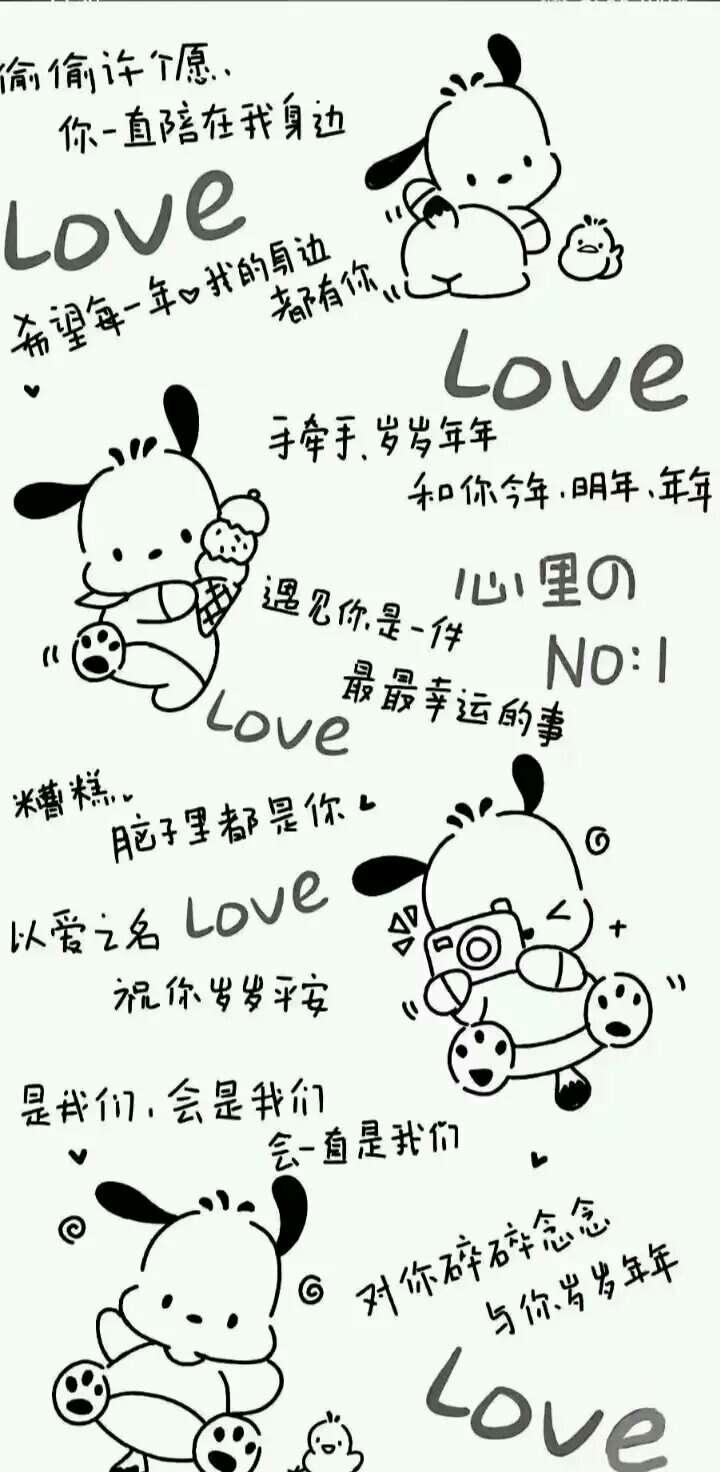 偷偷许个愿、
你一直陪在我身边
Love
希望每一年♥我的身边
都有你
Love
手牵手、岁岁年年
和你今年、明年、年年
心里の
NO:1
遇见你是一件
最最幸运的事
Love
糟糕、
脑子里都是你
Love
以爱之名
祝你岁岁平安
是我们、会是我们
会一直是我们
对你碎碎念念
与你岁岁年年
Love